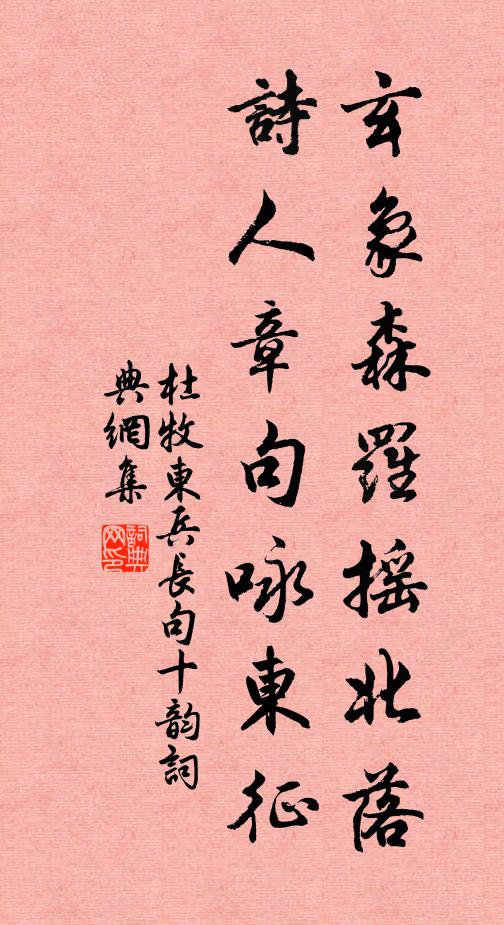 玄象森羅摇北落
詩人章句咏東征
杜牧東兵長句十韵詞
典網集
詞典网印